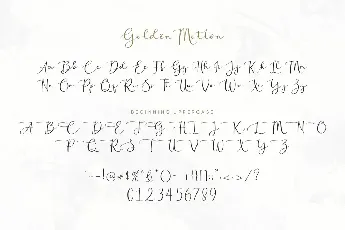 Golden Motion
Aa Bb Cc Dd Ee Ff Gg Hh Ii Jj Kk Ll Mm
Nn Oo Pp Qq Rr Ss Tt Uu Vv Ww Xx Yy Zz
BEGINNING UPPERCASE
A B C D E F G H I J K L M N O
P Q R S T U V W X Y Z
0123456789